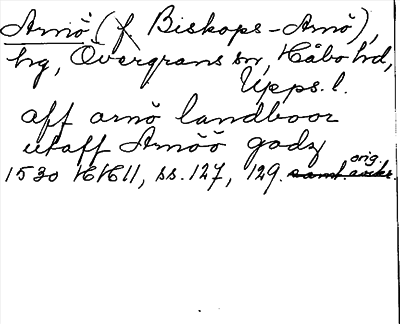 Arnö (f. Biskops-Arnö),
hg, Övergrans sn, Håbo hd,
Upps. l.
aff arnö landboor
utaff Arnöö godz
1530 KKII, ss. 127, 129. orig.